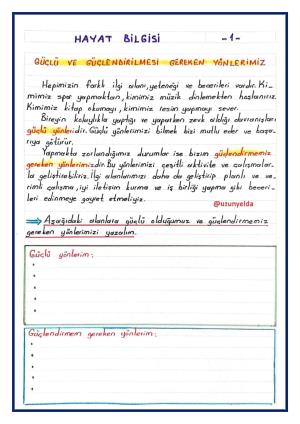 HAYAT BİLGİSİ -1-
GÜÇLÜ VE GÜÇLENDİRİLMESİ GEREKEN YÖNLERİMİZ
Hepimizin farklı ilgi alanı, yeteneği ve becerileri vardır. Ki-
mimiz spor yapmaktan, kimimiz müzik dinlemekten hoşlanırız.
Kimimiz kitap okumayı, kimimiz resim yapmayı sever.
Bireyin kolaylıkla yaptığı ve yaparken zevk aldığı davranışları
güçlü yönleridir. Güçlü yönlerimizi bilmek bizi mutlu eder ve başa-
rıya götürür.
Yapmakta zorlandığımız durumlar ise bizim güçlendirmemiz
gereken yönlerimizdir. Bu yönlerimizi çeşitli aktivite ve çalışmalar-
la geliştirebiliriz. İlgi alanlarımızı daha da geliştirip planlı ve ve-
rimli çalışma, iyi iletişim kurma ve iş birliği yapma gibi beceri-
leri edinmeye gayret etmeliyiz.
@uzunyelda
Aşağıdaki alanlara güçlü olduğumuz ve güçlendirmemiz
gereken yönlerimizi yazalım.
Güçlü yönlerim:
Güçlendirmem gereken yönlerim: